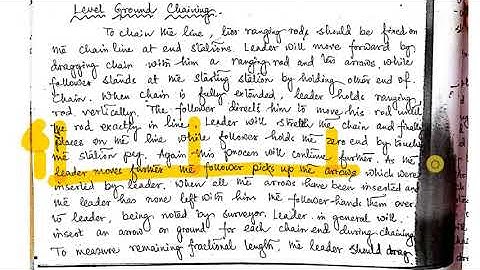 Level Ground Chaining.
To chain the line, two ranging rods should be fixed on
the chain line at end stations. Leader will move forward by
dragging chain with him a ranging rod and ten arrows while
follower stands at the starting station by holding other end of
chain. When chain is fully extended, leader holds ranging
rod vertically. The follower directs him to move his rod until
the rod exactly in line. Leader will stretch the chain and finally
places on the line while follower holds the zero end by touching
the station peg. Again this process will continue further. As the
leader moves further the follower picks up the arrows which were
inserted by leader. When all the arrows have been inserted and
the leader has none left with him the follower hands them over
to leader, being noted by surveyor. Leader in general will
insert an arrow on ground for each chain end during chaining
To measure remaining fractional length, the leader should drag